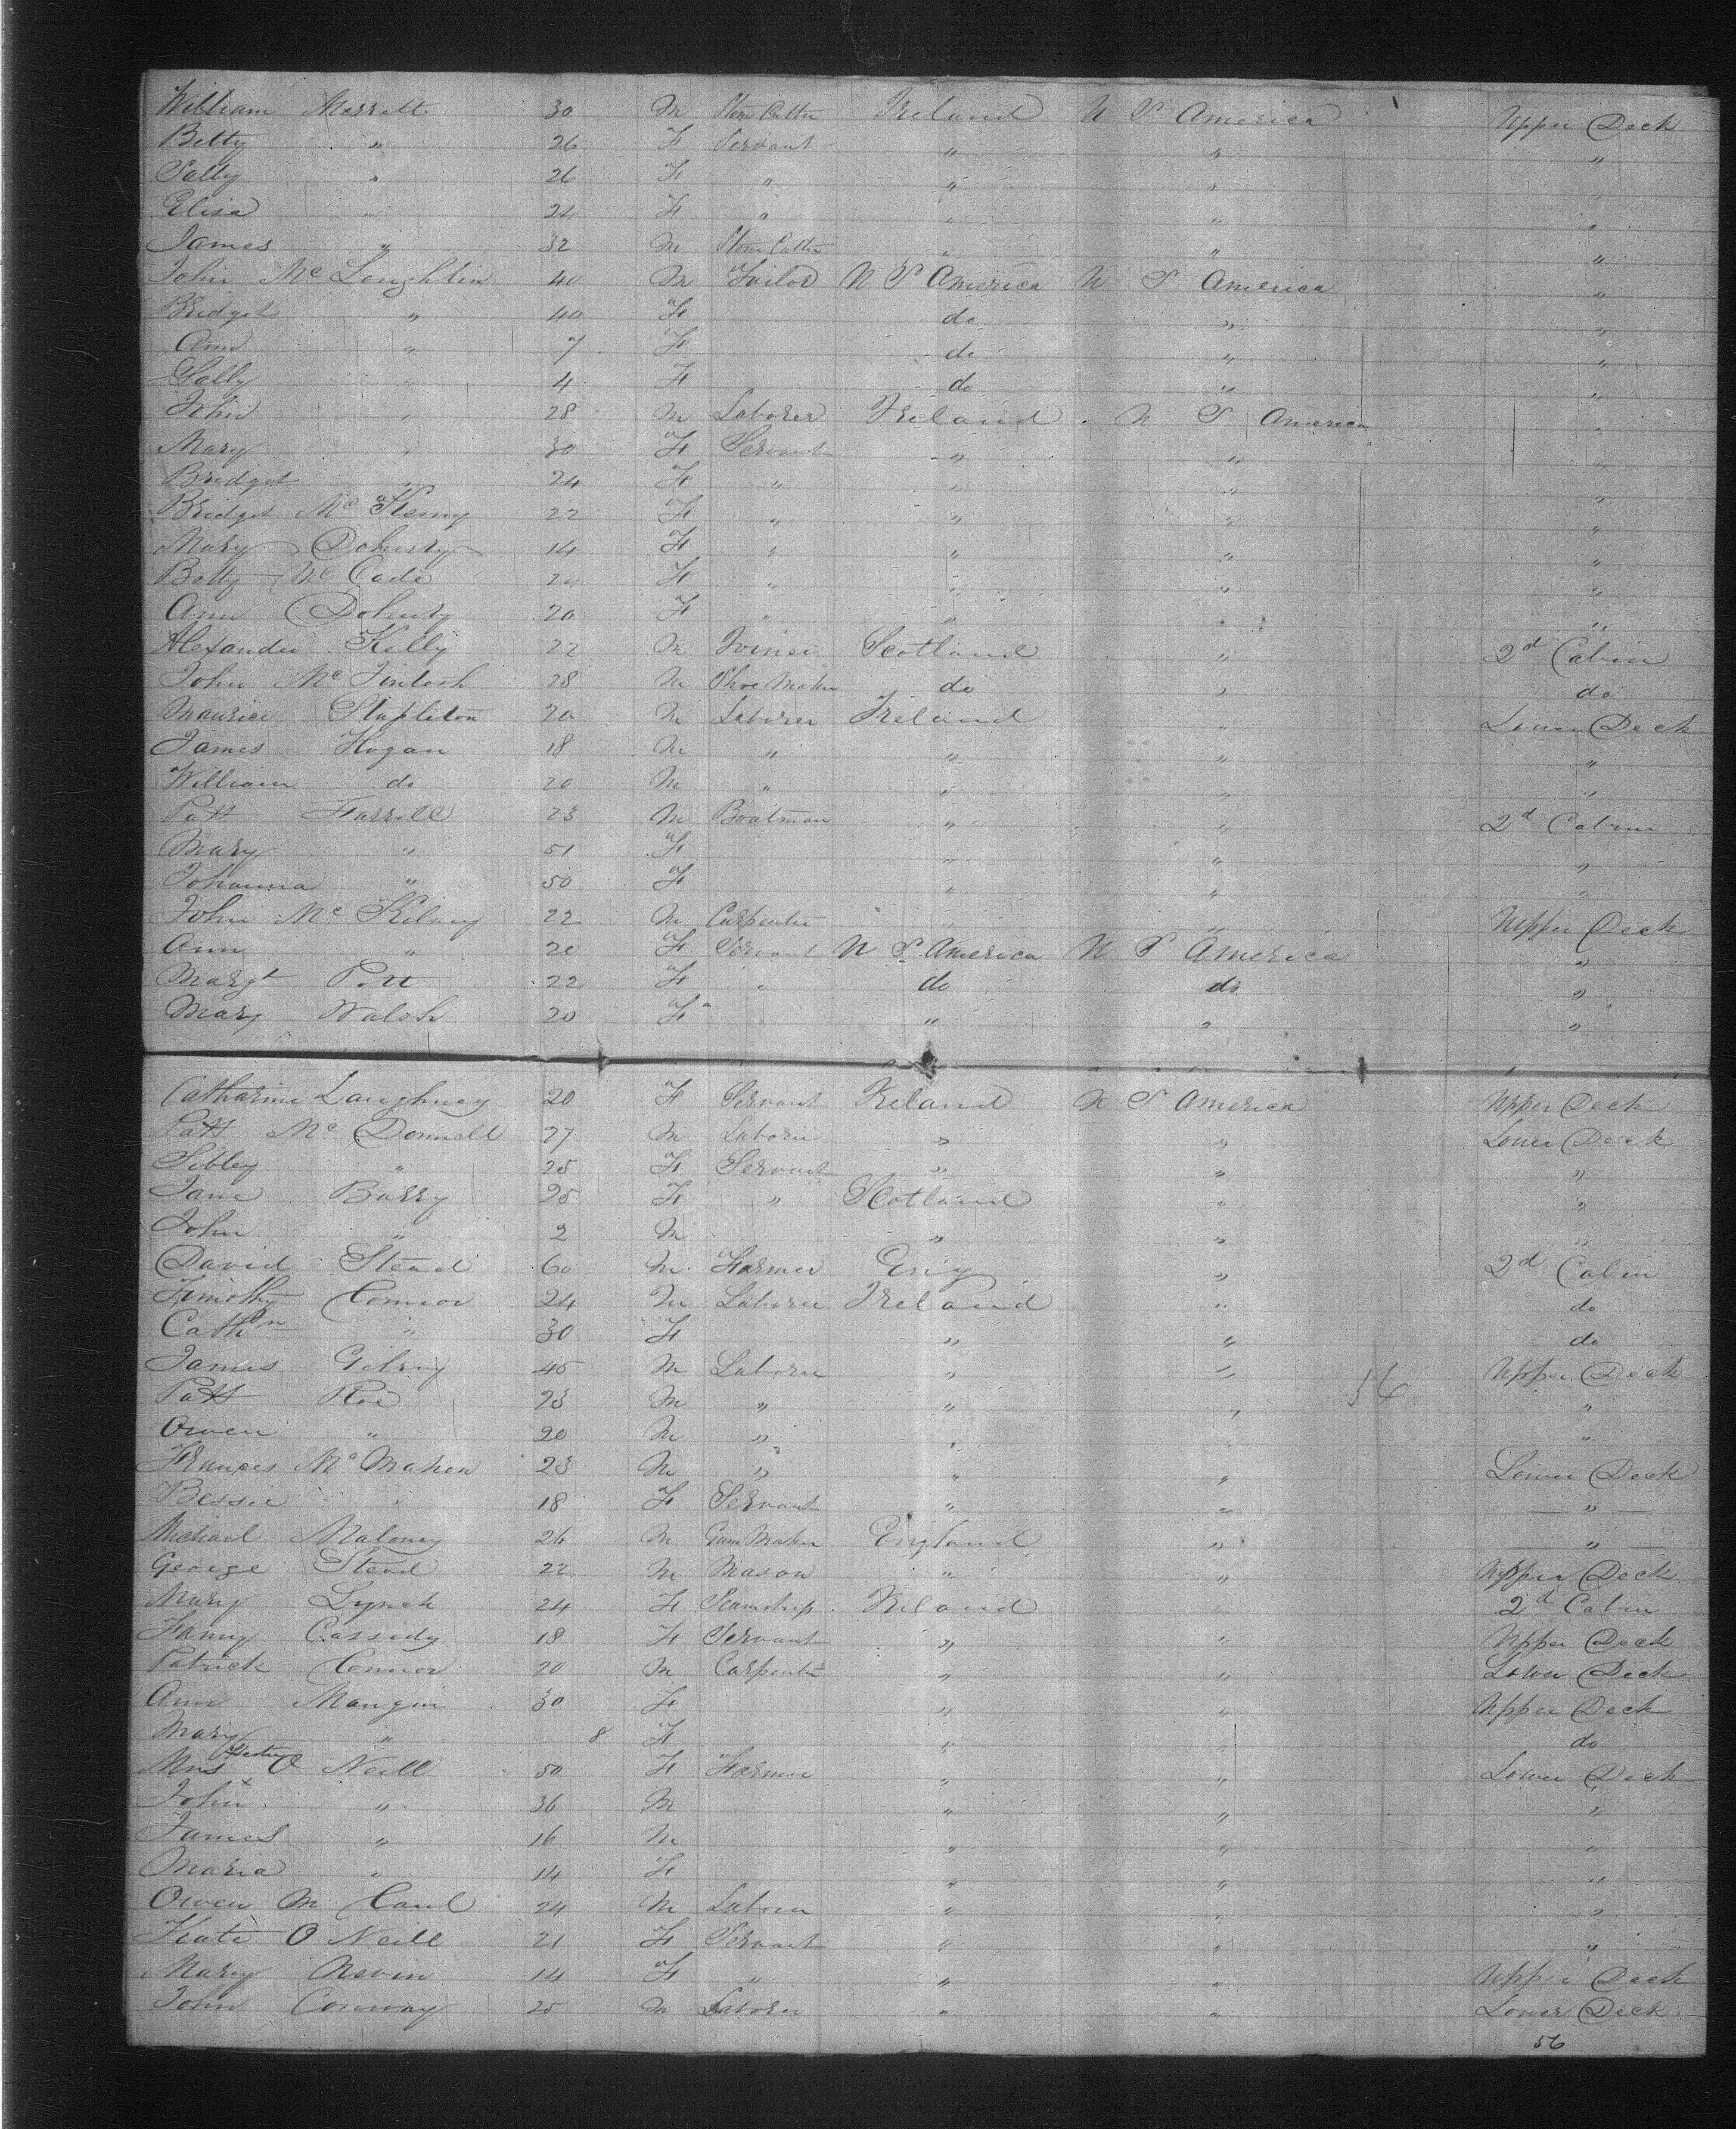 William Merrett 30 M Stone Cutter Ireland U S America Upper Deck
Betty " 26 F Servant " " "
Sally " 26 F " " " "
Elisa " 24 F " " " "
James " 32 M Stone Cutter " " "
John Mc Loughlin 40 M Tailor U S America U S America "
Bridget " 40 F do " "
Ann " 7 F do " "
Sally " 4 F do " "
John " 28 M Laborer Ireland U S America "
Mary " 30 F Servant " " "
Bridget " 24 F " " " "
Bridget Mc Kenny 22 F " " " "
Mary Doherty 14 F " " " "
Betty Mc Cade F " " " "
Ann Doherty 20 F " " " "
Alexander Kelly 22 M Joiner Scotland " 2d Cabin
John Mc Tintosh 28 M Shoe Maker do " do
Maurice Stapleton 20 M Laborer Ireland " Lower Deck
James Hogan 18 M " " " "
William do 20 M " " " "
Patt Farrell 23 M Boatman " " 2d Cabin
Mary " 51 F " " "
Johanna " 50 F " " "
John Mc Kilvey 22 M Carpenter " " Upper Deck
Ann " 20 F Servant U S America U S America "
Margt Pitt 22 F " do do "
Mary Walsh 20 F " " " "
Catharine Laughney 20 F Servant Ireland U S America Upper Deck
Patt Mc Donnell 27 M Laborer " " Lower Deck
Sibley " 25 F Servant " " "
Jane Barry 25 F " Scotland " "
John " 2 M " " "
David Stead 60 M Farmer Eng " 2d Cabin
Timothy Connor 24 M Laborer Ireland " do
Cathn " 30 F " " do
James Gilroy 45 M Laborer " " Upper Deck
Patt Roe 23 M " " " "
Owen " 20 M " " " "
Frances Mc Mahon 23 M " " " Lower Deck
Bessie " 18 F Servant " " "
Michael Maloney 26 M Gun Maker England " "
George Stead 22 M Mason " " Upper Deck
Mary Lynch 24 F Seamstress Ireland " 2d Cabin
Fanny Cassidy 18 F Servant " " Upper Deck
Patrick Connor 20 M Carpenter " " Lower Deck
Ann Mangin 30 F " " Upper Deck
Mary " 8 F " " do
Mrs O Neill 50 F Farmer " " Lower Deck
John " 36 M " " "
James " 16 M " " "
Maria " 14 F " " "
Owen M Caul 24 M Laborer " " "
Kate O Neill 21 F Servant " " "
Mary Nevin 14 F " " " Upper Deck
John Conway 25 M Laborer " " Lower Deck
56